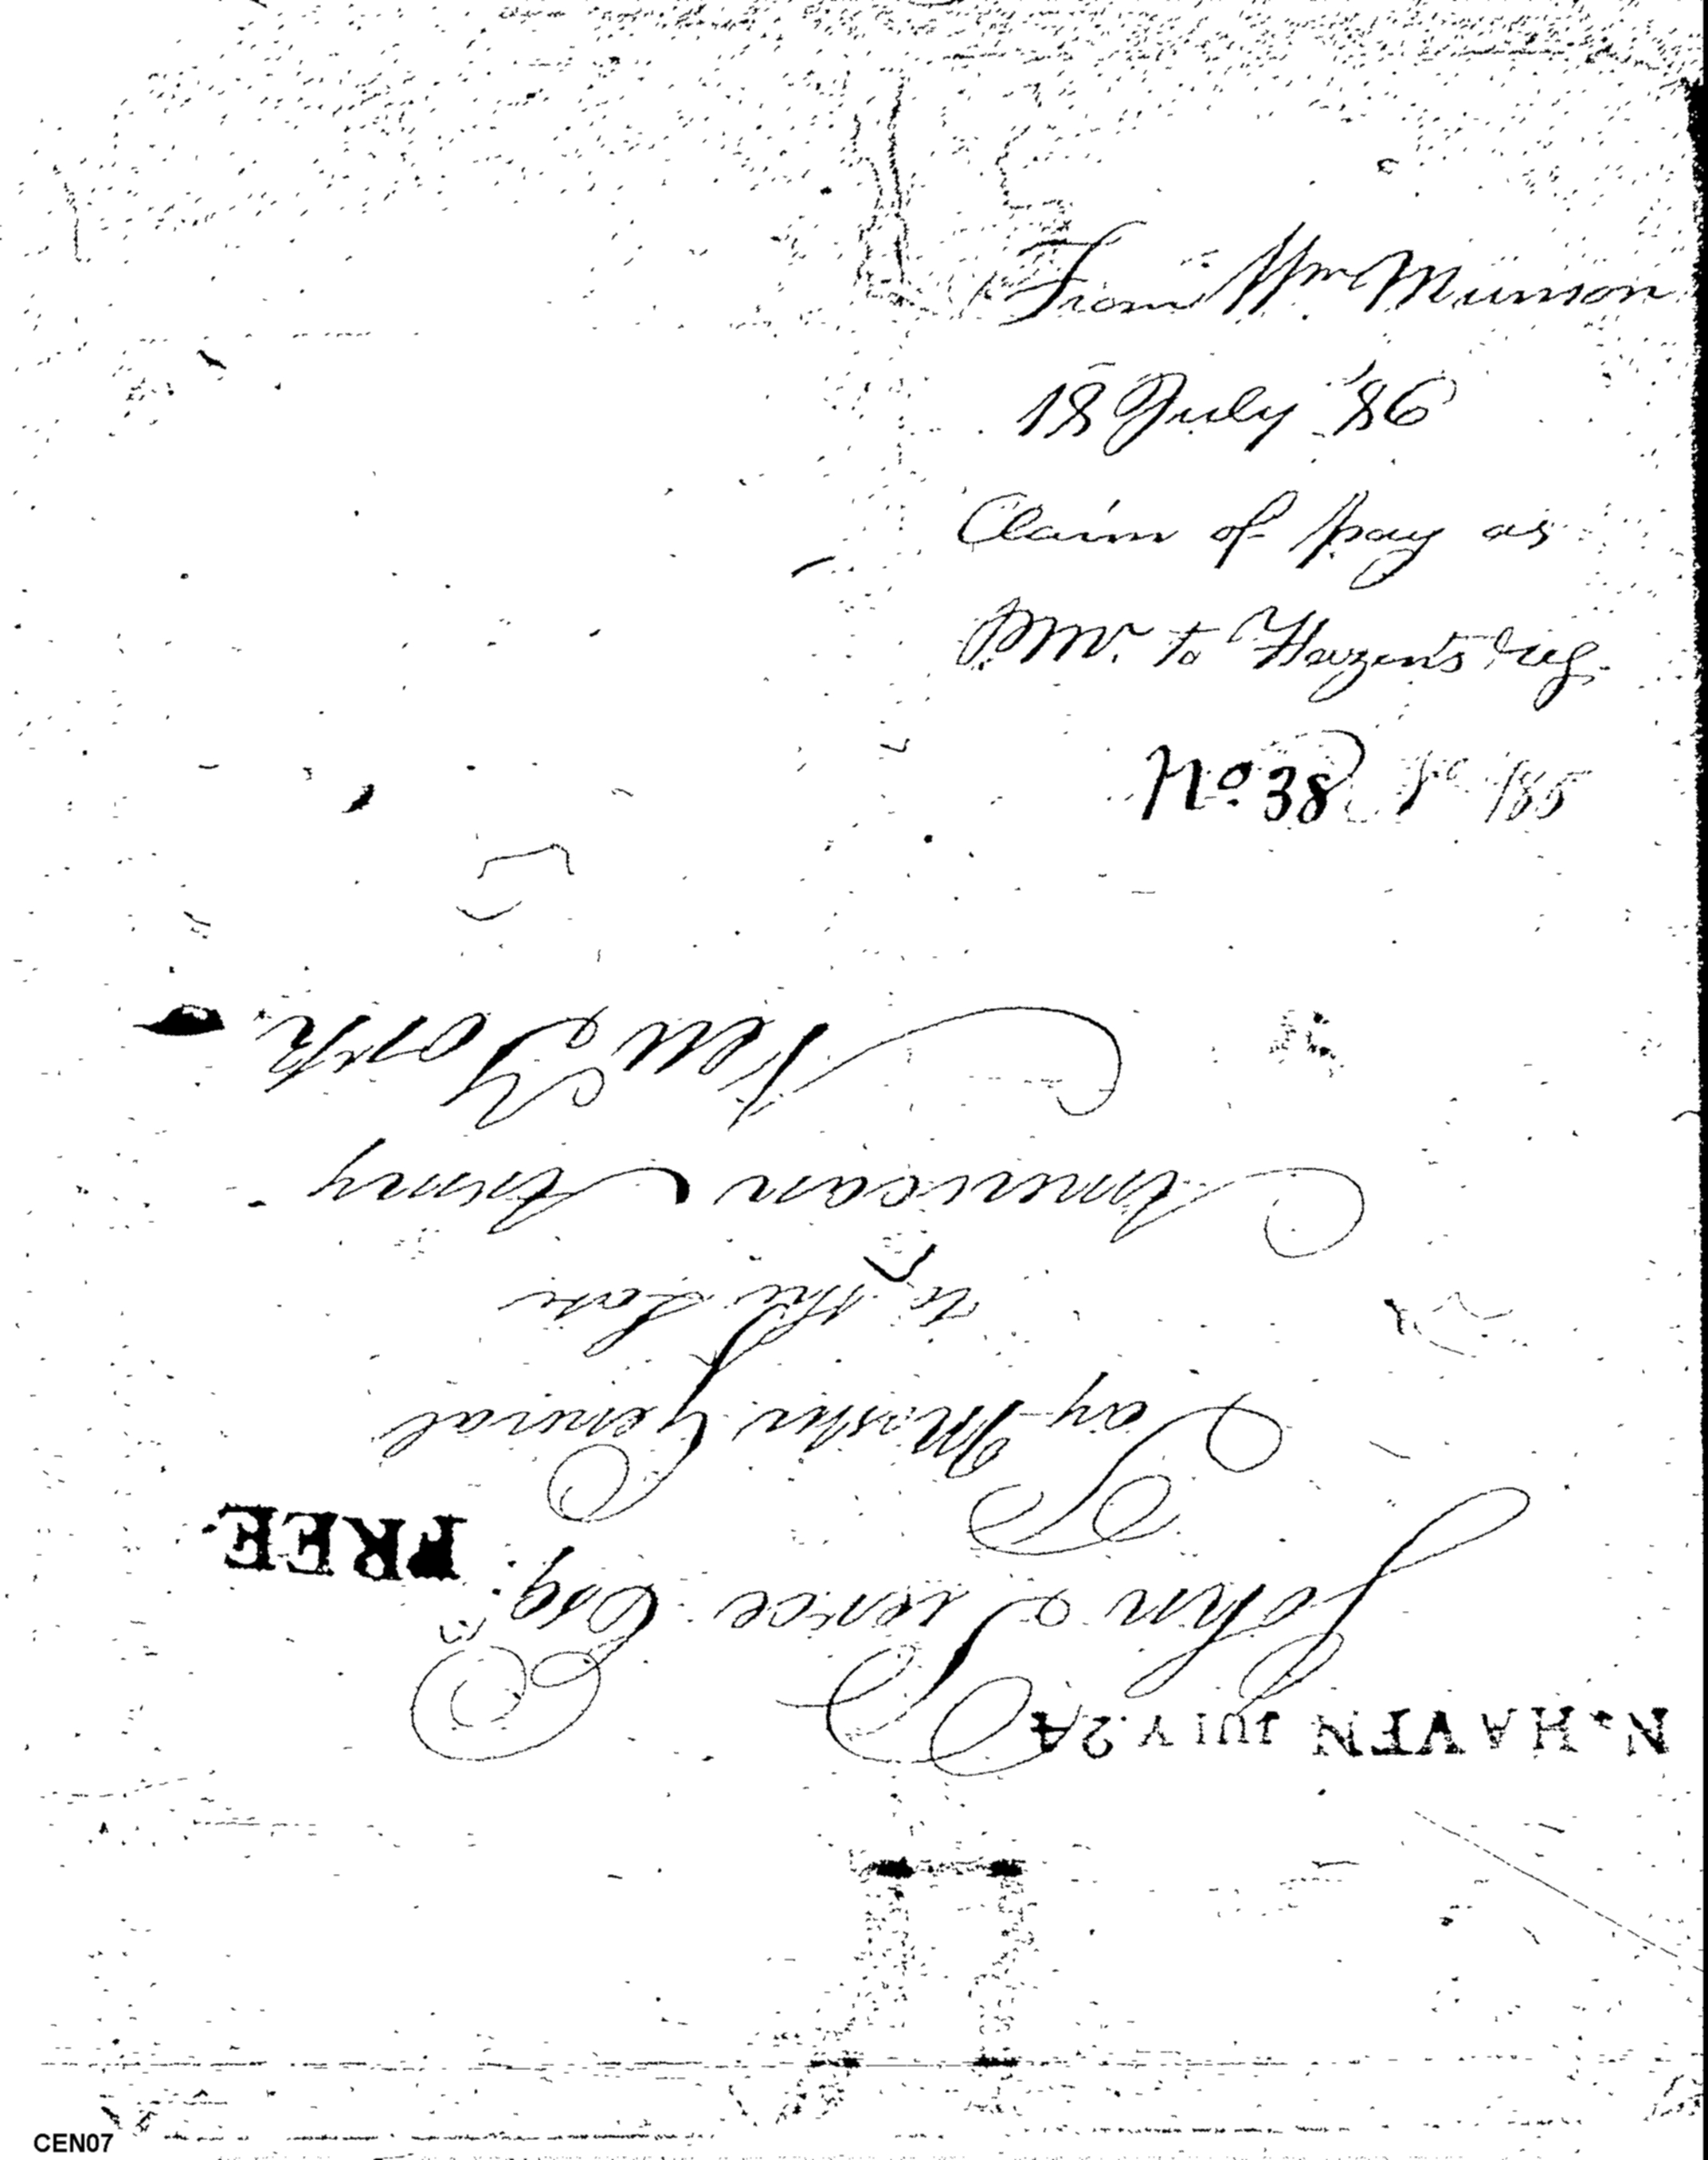 From Wm Munson
18 July '86
Claim of pay as
P.Mr. to Hazen's reg.
No. 38
N. HAVEN JULY. 24
John Pierce Esq.
FREE
Pay Master General
to the Late
American Army
New York
CEN07